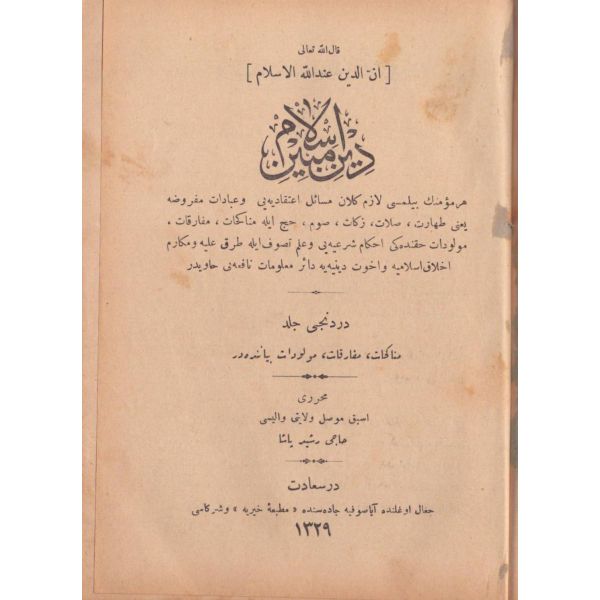 قال الله تعالى
[ انّ الدين عندالله الاسلام ]
دين مبين اسلام
هر مؤمنك بيلمسى لازم كلان مسائل اعتقاديه يى و عبادات مفروضه
يعنى طهارت ، صلات ، زكات ، صوم ، حج ايله مناكحات ، مفارقات ،
مولودات حقنده كى احكام شرعيه يى وعلم تصوف ايله طرق عليه ومكارم
اخلاق اسلاميه و اخوت دينيه يه دائر معلومات نافعه يى حاويدر
دردنجى جلد
مناكحات ، مفارقات ، مولودات بياننده در
محررى
اسبق موصل ولايتى واليسى
حاجى رشيد پاشا
درسعادت
جغال اوغلنده آياصوفيه جاده سنده « مطبعهٔ خيريه » وشركاسى
١٣٢٩